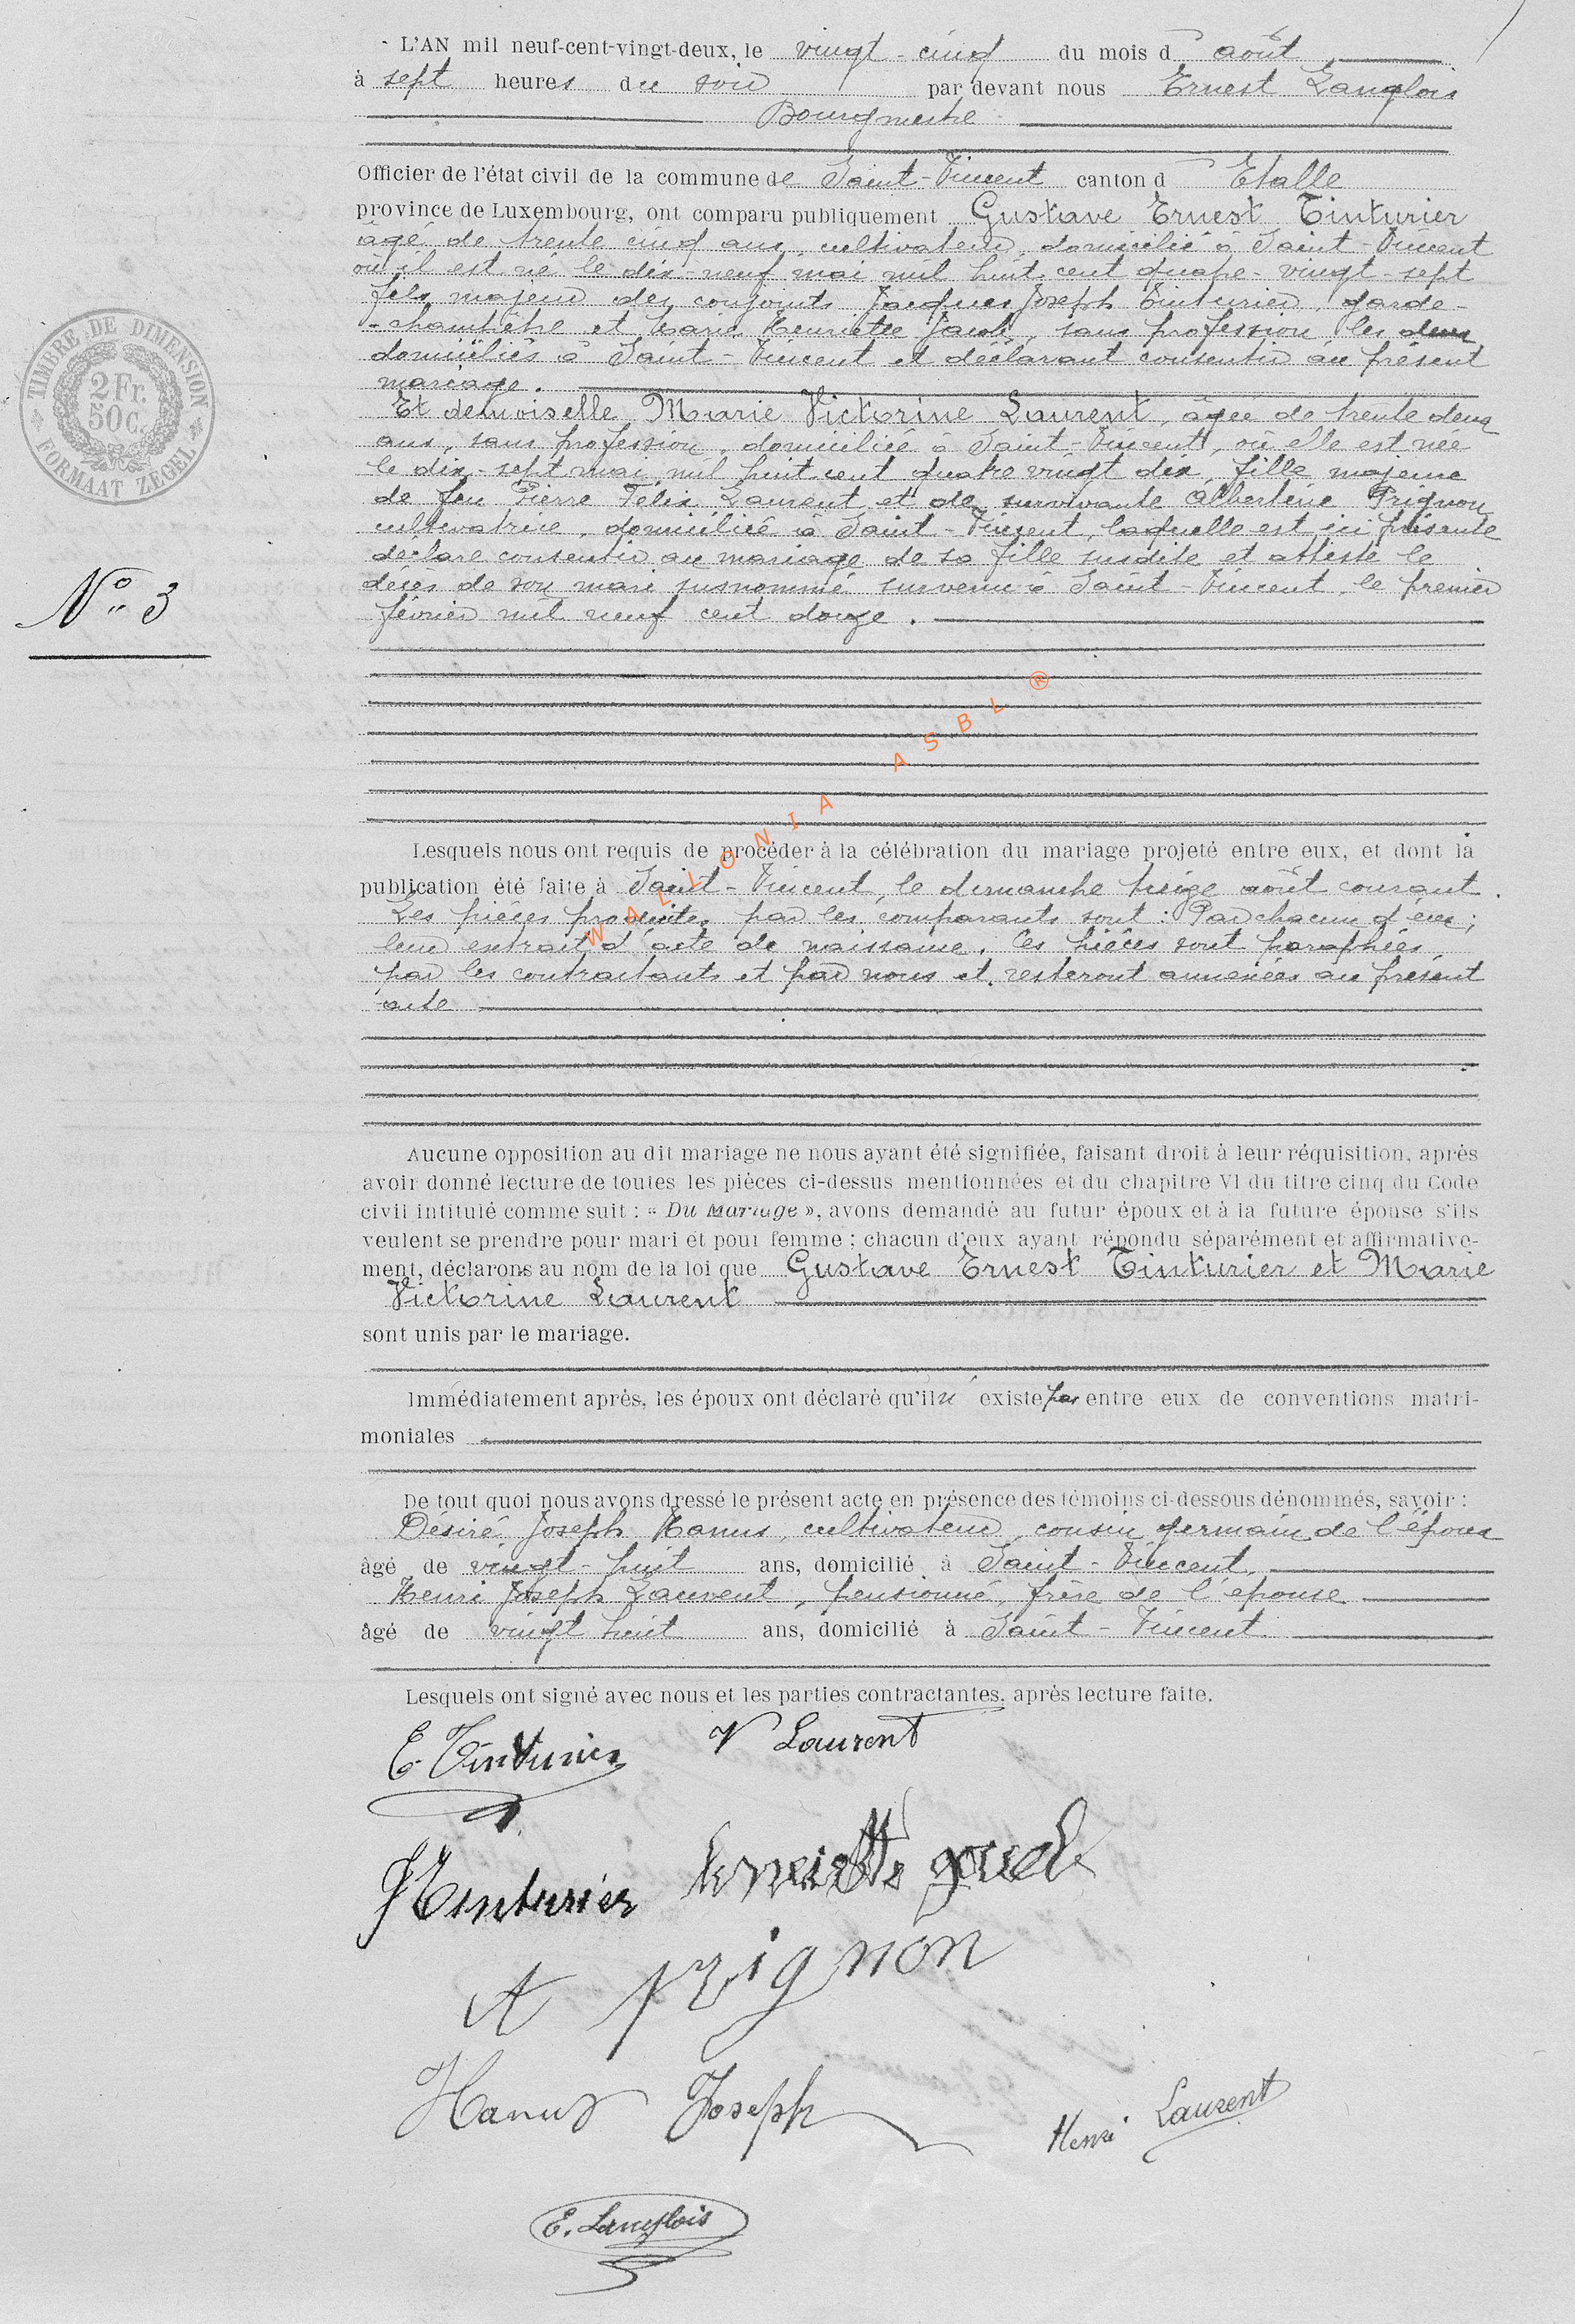 L'AN mil neuf-cent-vingt-deux, le vingt-cinq du mois d août
à sept heures du soir par devant nous Ernest Langlois
Bourgmestre
Officier de l'état civil de la commune de Saint-Vincent canton d Etalle
province de Luxembourg, ont comparu publiquement Gustave Ernest Tinturier
âgé de trente cinq ans, cultivateur, domicilié à Saint-Vincent
où il est né le dix-neuf mai mil huit cent quatre-vingt-sept
fils majeur des conjoints Jacques Joseph Tinturier, garde-
-champêtre et Marie Henriette Jacob, sans profession, les deux
domiciliés à Saint-Vincent et déclarant consentir au présent
mariage.
Et demoiselle Marie Victorine Laurent, âgée de trente deux
ans, sans profession, domiciliée à Saint-Vincent, où elle est née
le dix-sept mai mil huit cent quatre vingt dix, fille majeure
de feu Pierre Félix Laurent et de survivante Albertine Prignon
cultivatrice, domiciliée à Saint-Vincent, laquelle est ici présente
déclare consentir au mariage de sa fille susdite et atteste le
décès de son mari susnommé survenu à Saint-Vincent, le premier
février mil neuf cent douze.
N° 3
TIMBRE DE DIMENSION
2 Fr.
50 C.
FORMAAT ZEGEL
WALLONIA ASBL ®
Lesquels nous ont requis de procéder à la célébration du mariage projeté entre eux, et dont la
publication été faite à Saint-Vincent, le dimanche treize août courant.
Les pièces produites par les comparants sont: Par chacun d'eux;
leur extrait d'acte de naissance. Ces pièces sont paraphées
par les contractants et par nous et resteront annexées au présent
acte
Aucune opposition au dit mariage ne nous ayant été signifiée, faisant droit à leur réquisition, après
avoir donné lecture de toutes les pièces ci-dessus mentionnées et du chapitre VI du titre cinq du Code
civil intitulé comme suit : « Du Mariage », avons demandé au futur époux et à la future épouse s'ils
veulent se prendre pour mari et pour femme ; chacun d'eux ayant répondu séparément et affirmative-
ment, déclarons au nom de la loi que Gustave Ernest Tinturier et Marie
Victorine Laurent
sont unis par le mariage.
Immédiatement après, les époux ont déclaré qu'il n'existe pas entre eux de conventions matri-
moniales
De tout quoi nous avons dressé le présent acte en présence des témoins ci-dessous dénommés, savoir :
Désiré Joseph Hanus, cultivateur, cousin germain de l'époux
âgé de vingt-huit ans, domicilié à Saint-Vincent.
Henri Joseph Laurent, pensionné, frère de l'épouse
âgé de vingt huit ans, domicilié à Saint-Vincent.
Lesquels ont signé avec nous et les parties contractantes, après lecture faite.
E. Tinturier V Laurent
J Tinturier henriette jacob
A prignon
Hanus Joseph Henri Laurent
E. Langlois